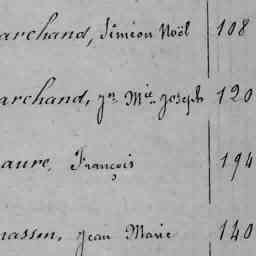 archand, Siméon Noël 108
archand, Jn Mie Joseph 120
aure, François 194
masson, Jean Marie 140